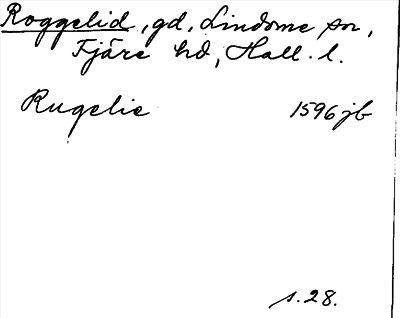 Roggelid, gd, Lindome sn,
Fjäre hd, Hall. l.
Rugelie 1596 jb
s. 28.